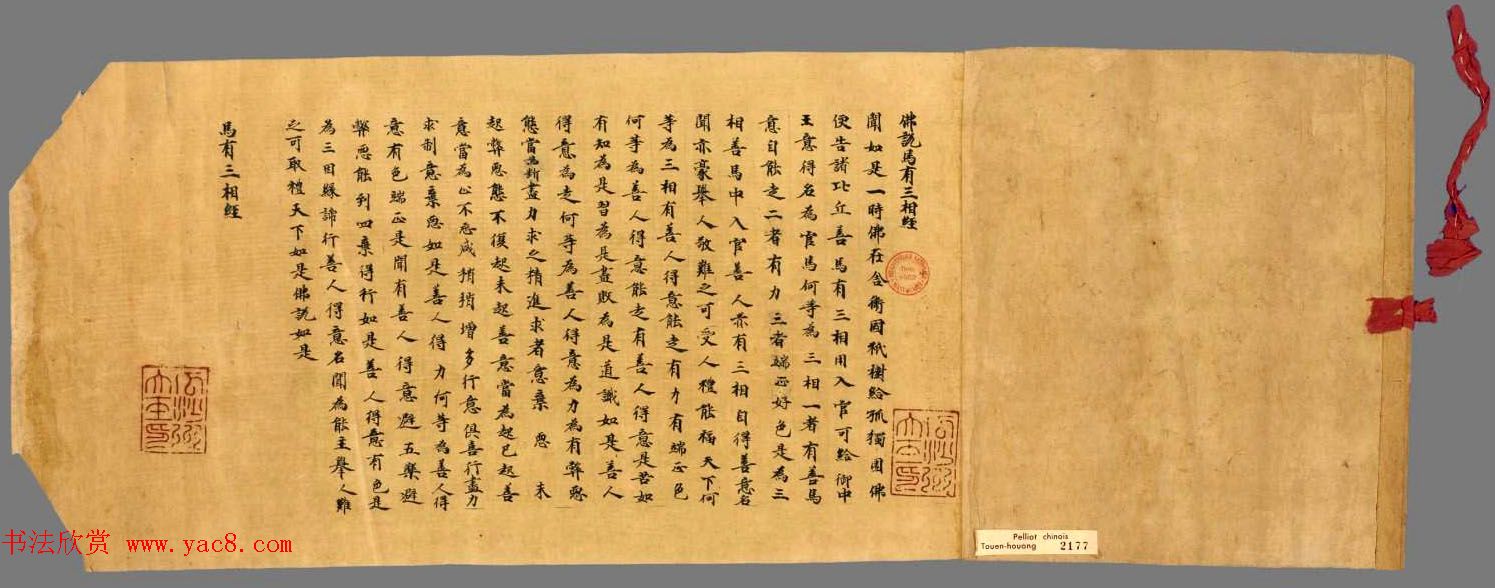 佛說馬有三相經
聞如是一時佛在舍衛國祇樹給孤獨園佛
便告諸比丘善馬有三相用入官可給御中
王意得名為官馬何等為三相一者有善馬
意自能走二者有力三者端正好色是為三
相善馬中入官善人亦有三相自得善意名
聞亦豪舉人敬難之可受人禮能福天下何
等為三相有善人得意能走有力有端正色
何等為善人得意能走有善人得意是苦如
有知為是習為是盡敗為是道識如是善人
得意為走何等為善人得意為力為有弊惡
態當為斷盡力求之精進求者意棄惡 未
起弊惡態不復起未起善意當為起已起善
意當為止不忘咸稍稍增多行意俱喜行盡力
求制意棄惡如是善人得力何等為善人得
意有色端正是聞有善人得意避五樂避
弊惡能到四棄得行如是善人得意有色是
為三因緣諦行善人得意名聞為能主舉人難
之可取禮天下如是佛說如是
馬有三相經
Pelliot chinois
Touen-houang 2177
书法欣赏 www.yac8.com